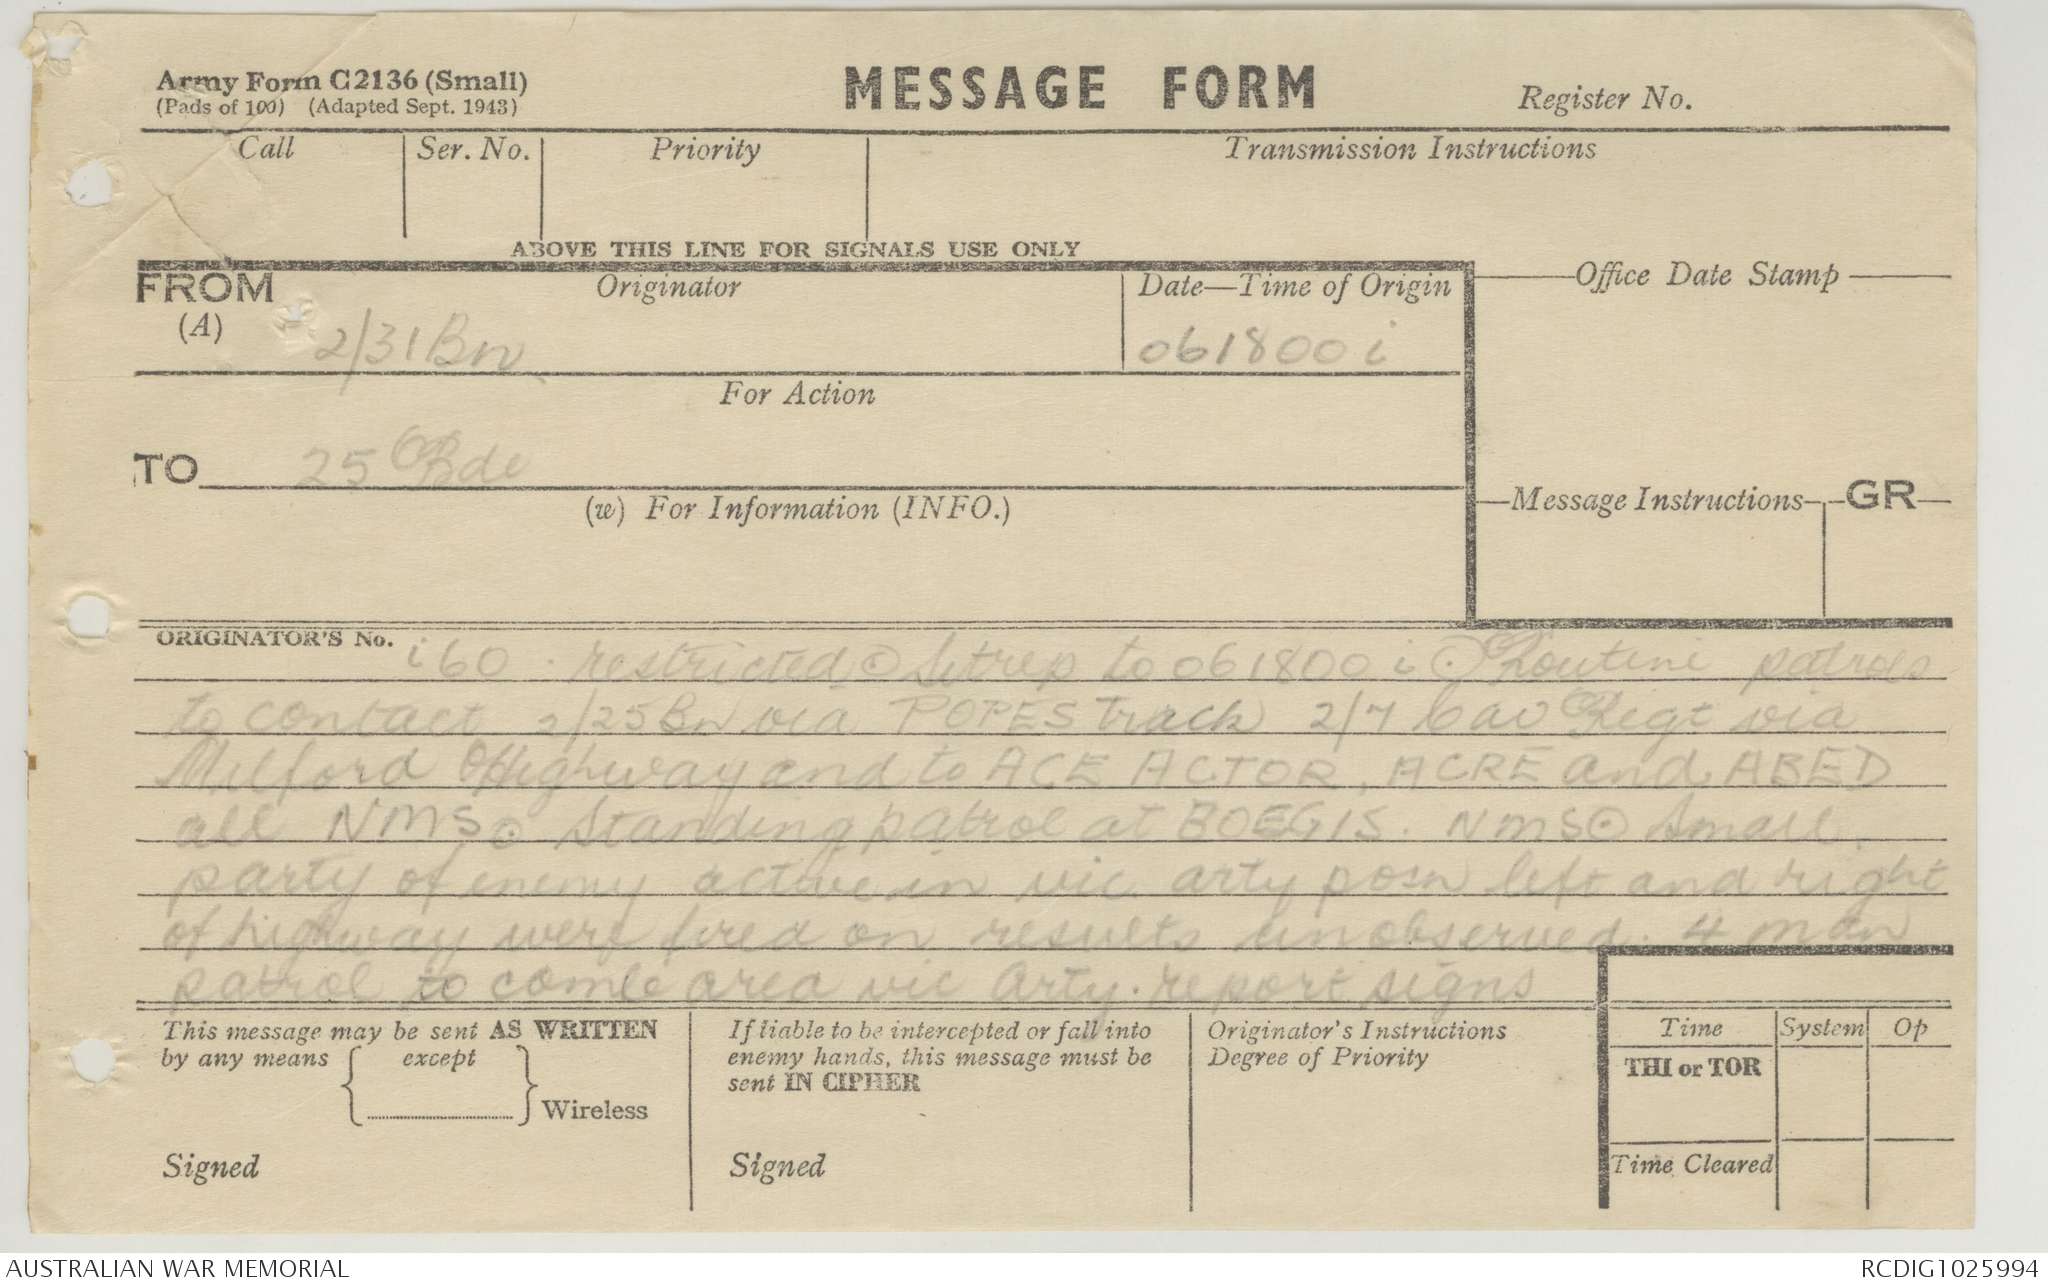 Army Form C2136 (Small)
(Pads of 100) (Adapted Sept. 1943)
MESSAGE FORM
Register No.
Call
Ser. No.
Priority
Transmission Instructions
ABOVE THIS LINE FOR SIGNALS USE ONLY
FROM
(A)
Originator
Date—Time of Origin
Office Date Stamp
2/31 Bn
061800 i
For Action
TO
25 Bde
(w) For Information (INFO.)
Message Instructions
GR
ORIGINATOR'S No.
i60 . restricted ⊙ Sitrep to 061800 i ⊙ Routine patrols
to contact 2/25 Bn via POPES track 2/7 Cav Regt via
Milford Highway and to ACE ACTOR, ACRE and ABED
all NMS ⊙ Standing patrol at BOEGIS. NMS ⊙ Small
party of enemy active in vic arty posn left and right
of highway were fired on results unobserved. 4 man
patrol to comb area vic Arty. report signs
This message may be sent AS WRITTEN
by any means
except
Wireless
Signed
If liable to be intercepted or fall into
enemy hands, this message must be
sent IN CIPHER
Signed
Originator's Instructions
Degree of Priority
Time
System
Op
THI or TOR
Time Cleared
AUSTRALIAN WAR MEMORIAL
RCDIG1025994